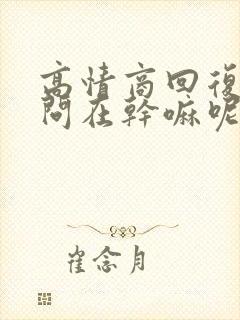 高情商回復
問在幹嘛呢
崔念月